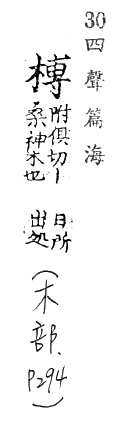 30 四聲篇海
榑
附俱切丨
桑神木也
日所
出処
(木部. P294)